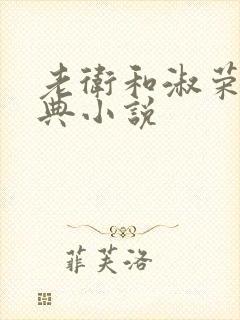 老衛和淑荣
典小说
菲芙洛